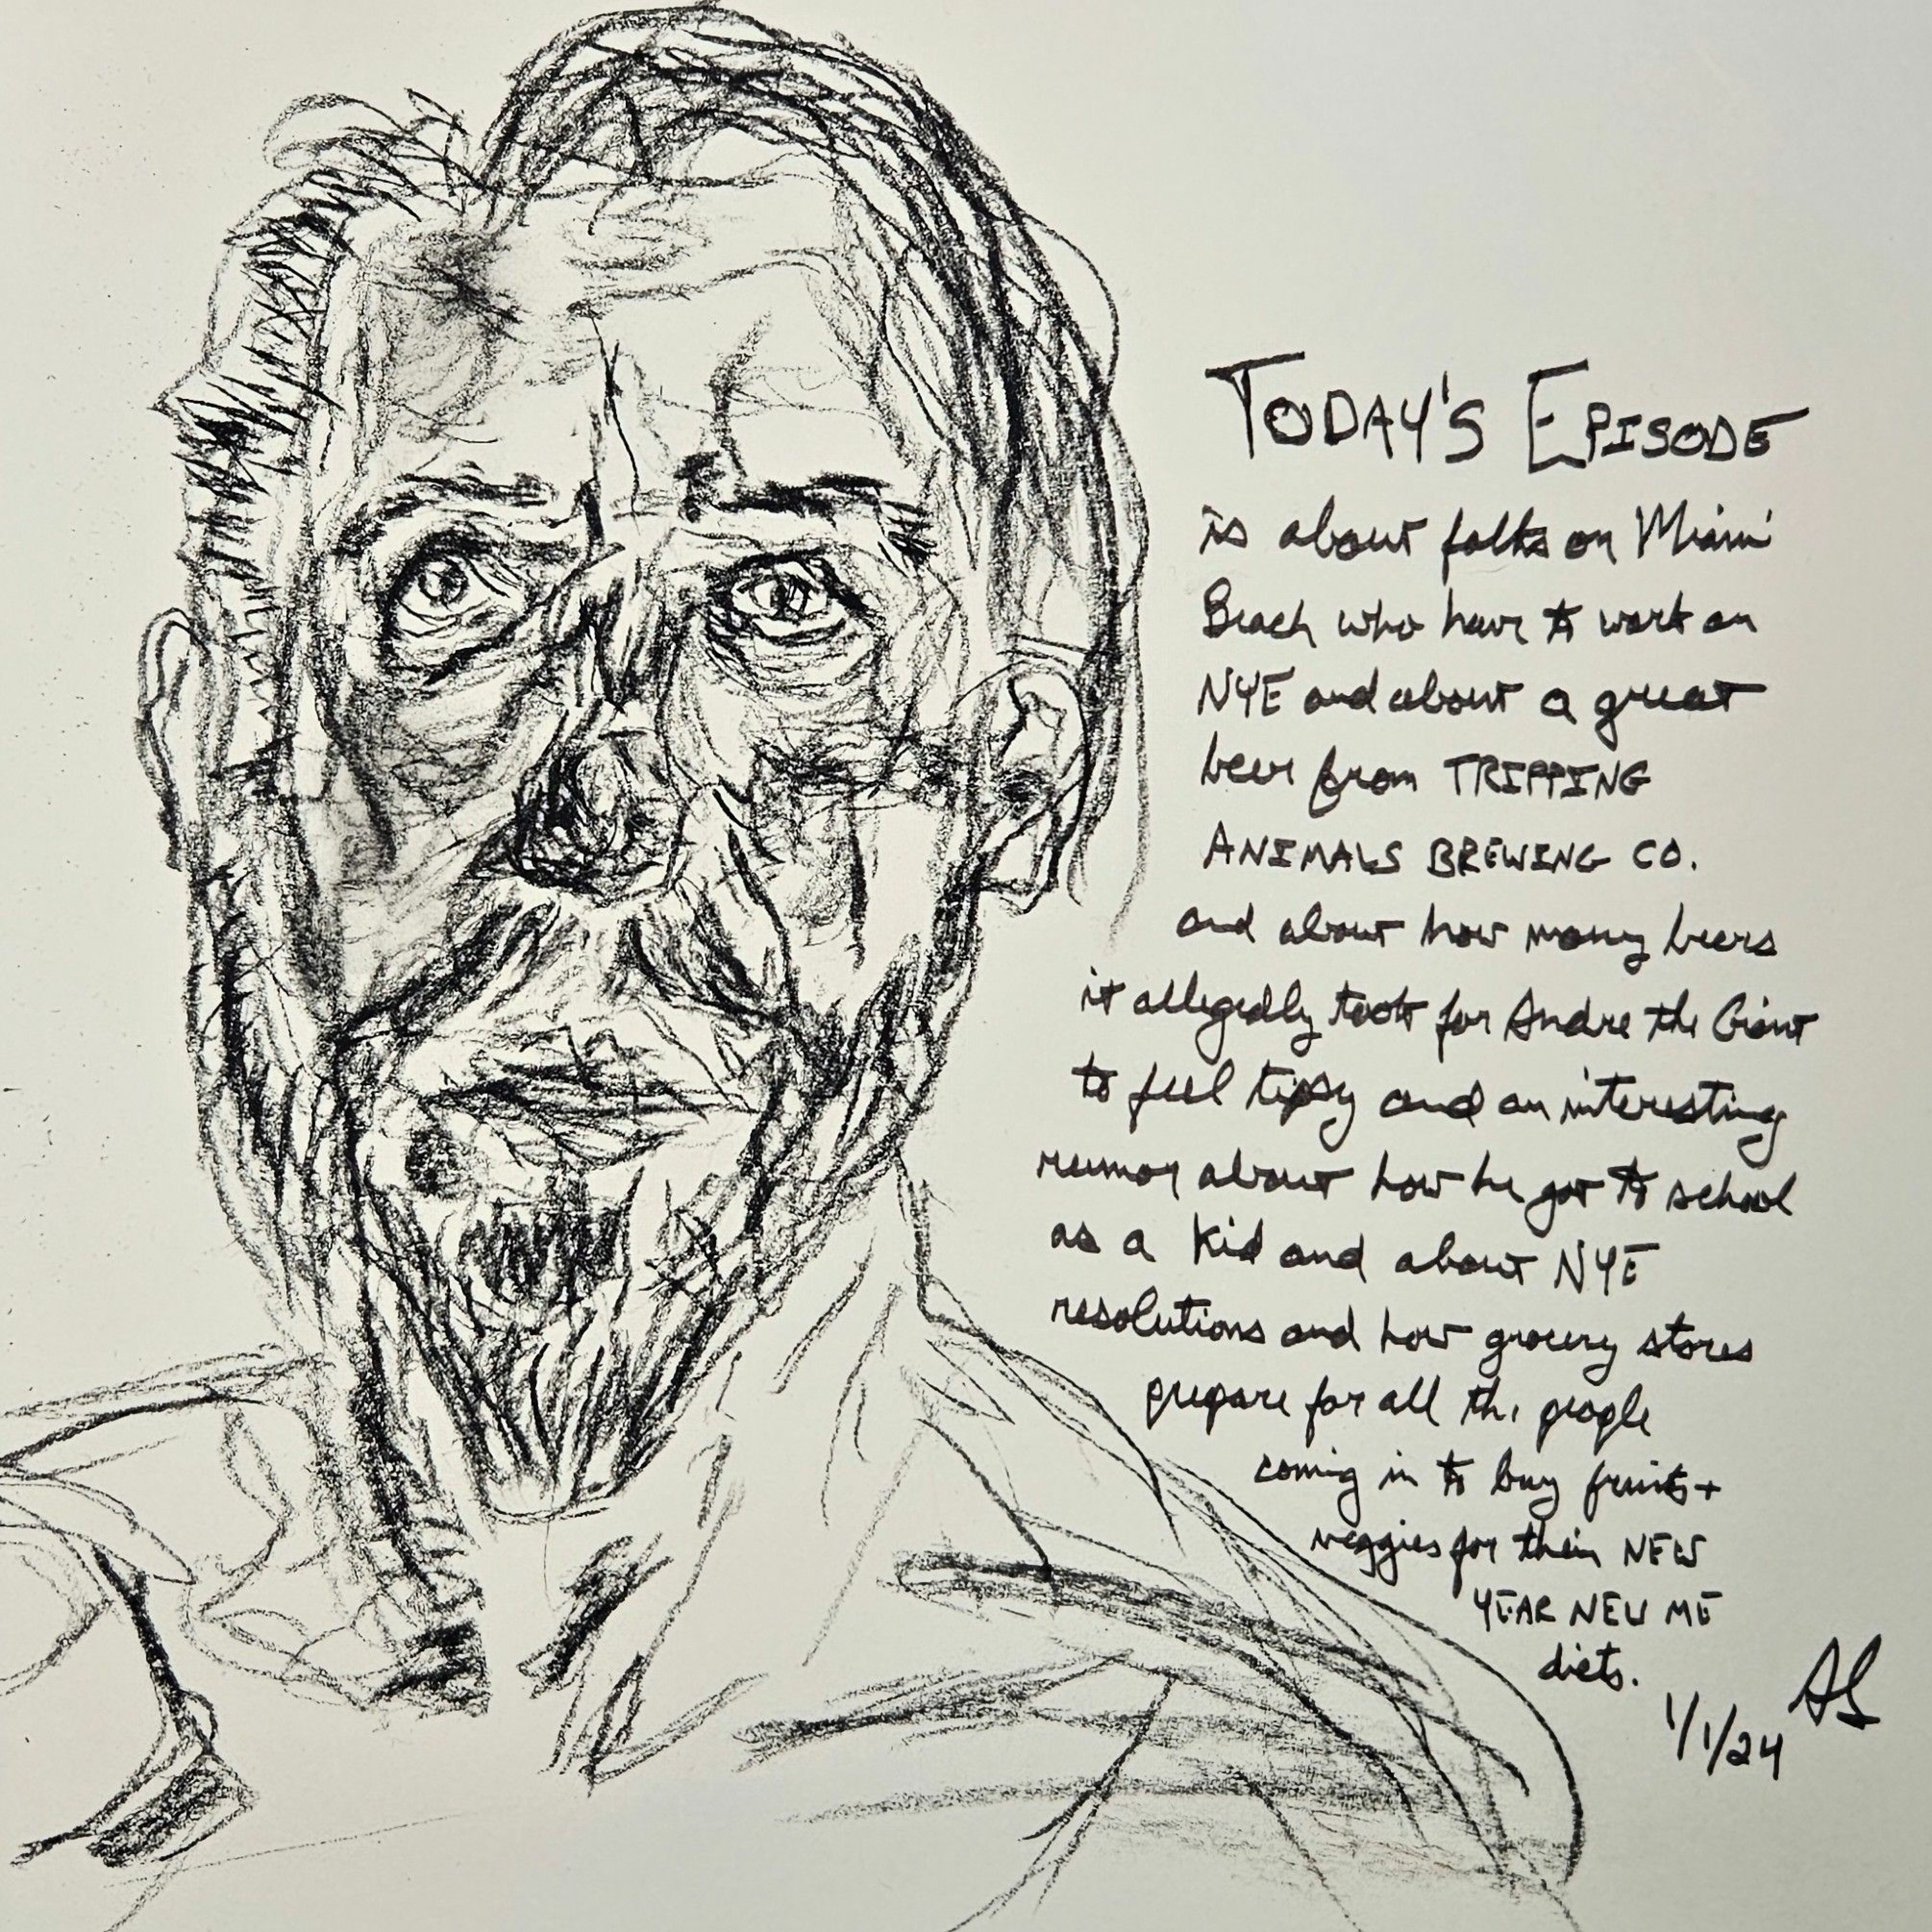 TODAY'S EPISODE
is about folks on Miami
Beach who have to work on
NYE and about a great
beer from TRIPPING
ANIMALS BREWING CO.
and about how many beers
it allegedly took for Andre the Giant
to feel tipsy and an interesting
rumor about how he got to school
as a kid and about NYE
resolutions and how grocery stores
prepare for all the people
coming in to buy fruits +
veggies for their NEW
YEAR NEW ME
diets.
AS
1/1/24